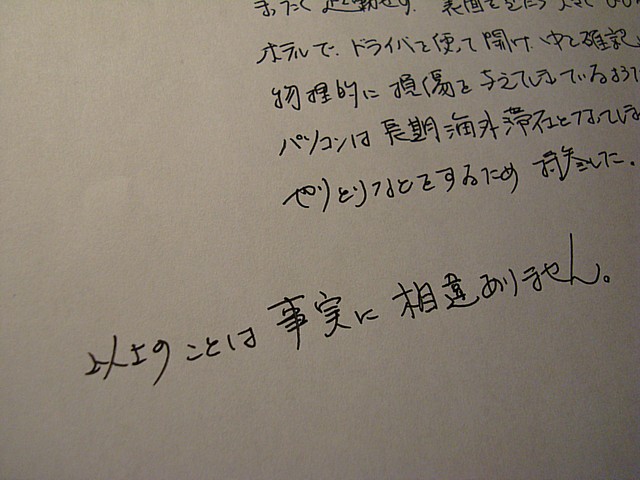 まったく起動せず。表面を
ホテルで、ドライバを使って開け、中を確認
物理的に損傷を与えてしまっているよう
パソコンは長期海外滞在となってしま
やりとりなどをするため持参した。
以上のことは事実に相違ありません。